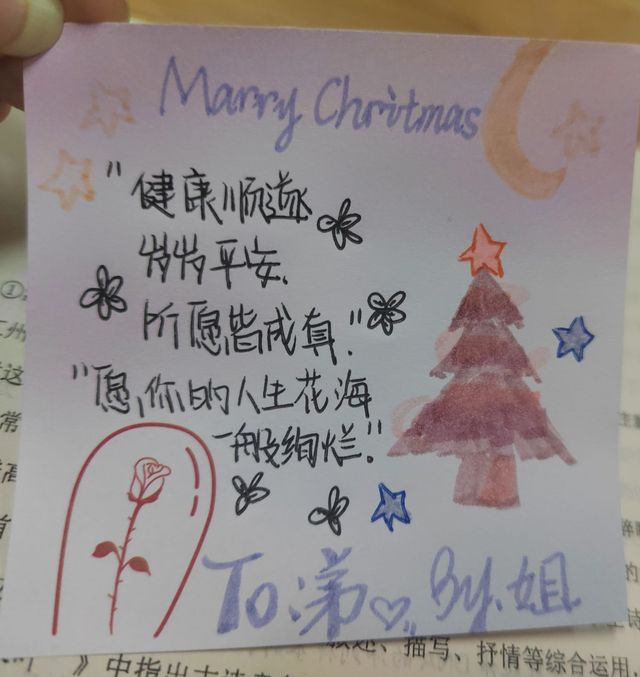 Marry Chritmas
"健康顺遂
岁岁平安、
所愿皆成真."
"愿,你的人生花海
一般绚烂."
To. By.姐
①
州
这
常
描写、抒情等综合运用,
》中指出